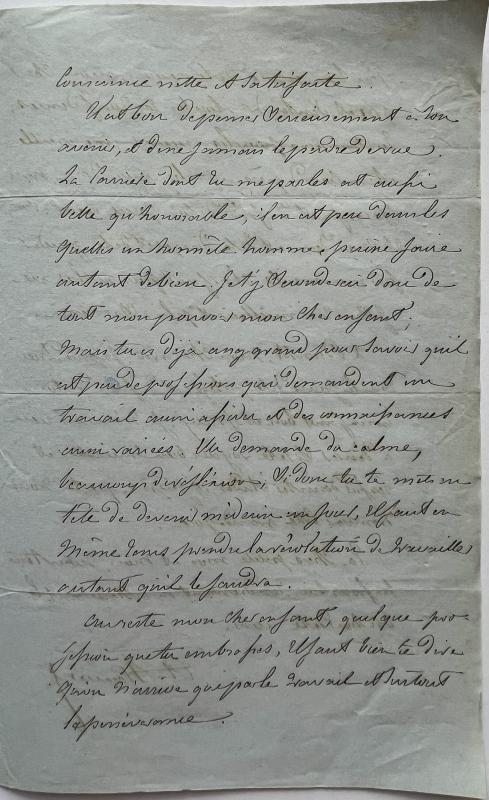 Conscience nette et satisfaite.
Il est bon de penser serieusement à ton
avenir, et de ne jamais le perdre de vue.
La Carriere dont tu me parles est aussi
belle qu'honorable, il en est peu dans les
quelles un honnête homme, puisse faire
autant de bien. Je t'y seconderai donc de
tout mon pouvoir mon cher enfant,
Mais tu es déjà assez grand pour savoir qu'il
est peu de professions qui demandent un
travail aussi assidu et des connaissances
aussi variées. Elle demande du calme,
beaucoup de réflexion, Si donc tu te mets en
tête de devenir médecin un jour, il faut en
même tems prendre la résolution de travailler
autant qu'il le faudra.
au reste mon cher enfant, quelque pro-
fession que tu embrasses, il faut bien te dire
qu'on n'arrive que par le travail et surtout
la persévérance.